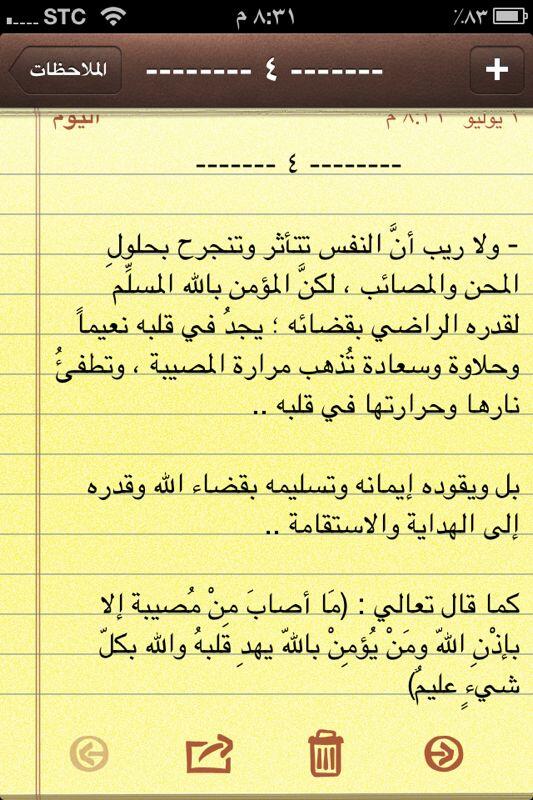 STC ٨:٣١ م ٪٨٣
الملاحظات -------- ٤ ------- +
اليوم ٦ يوليو ٨:٢٦ م
------- ٤ --------
- ولا ريب أنَّ النفس تتأثر وتنجرح بحلولِ
المحن والمصائب ، لكنَّ المؤمن بالله المسلِّم
لقدره الراضي بقضائه ؛ يجدُ في قلبه نعيماً
وحلاوة وسعادة تُذهب مرارة المصيبة ، وتطفئُ
نارها وحرارتها في قلبه ..
بل ويقوده إيمانه وتسليمه بقضاء الله وقدره
إلى الهداية والاستقامة ..
كما قال تعالي : (مَا أصابَ مِنْ مُصيبة إلا
بإذْنِ اللهّ ومَنْ يُؤمِنْ باللهّ يهدِ قلبهُ والله بكلّ
شيءٍ عليمٌ)